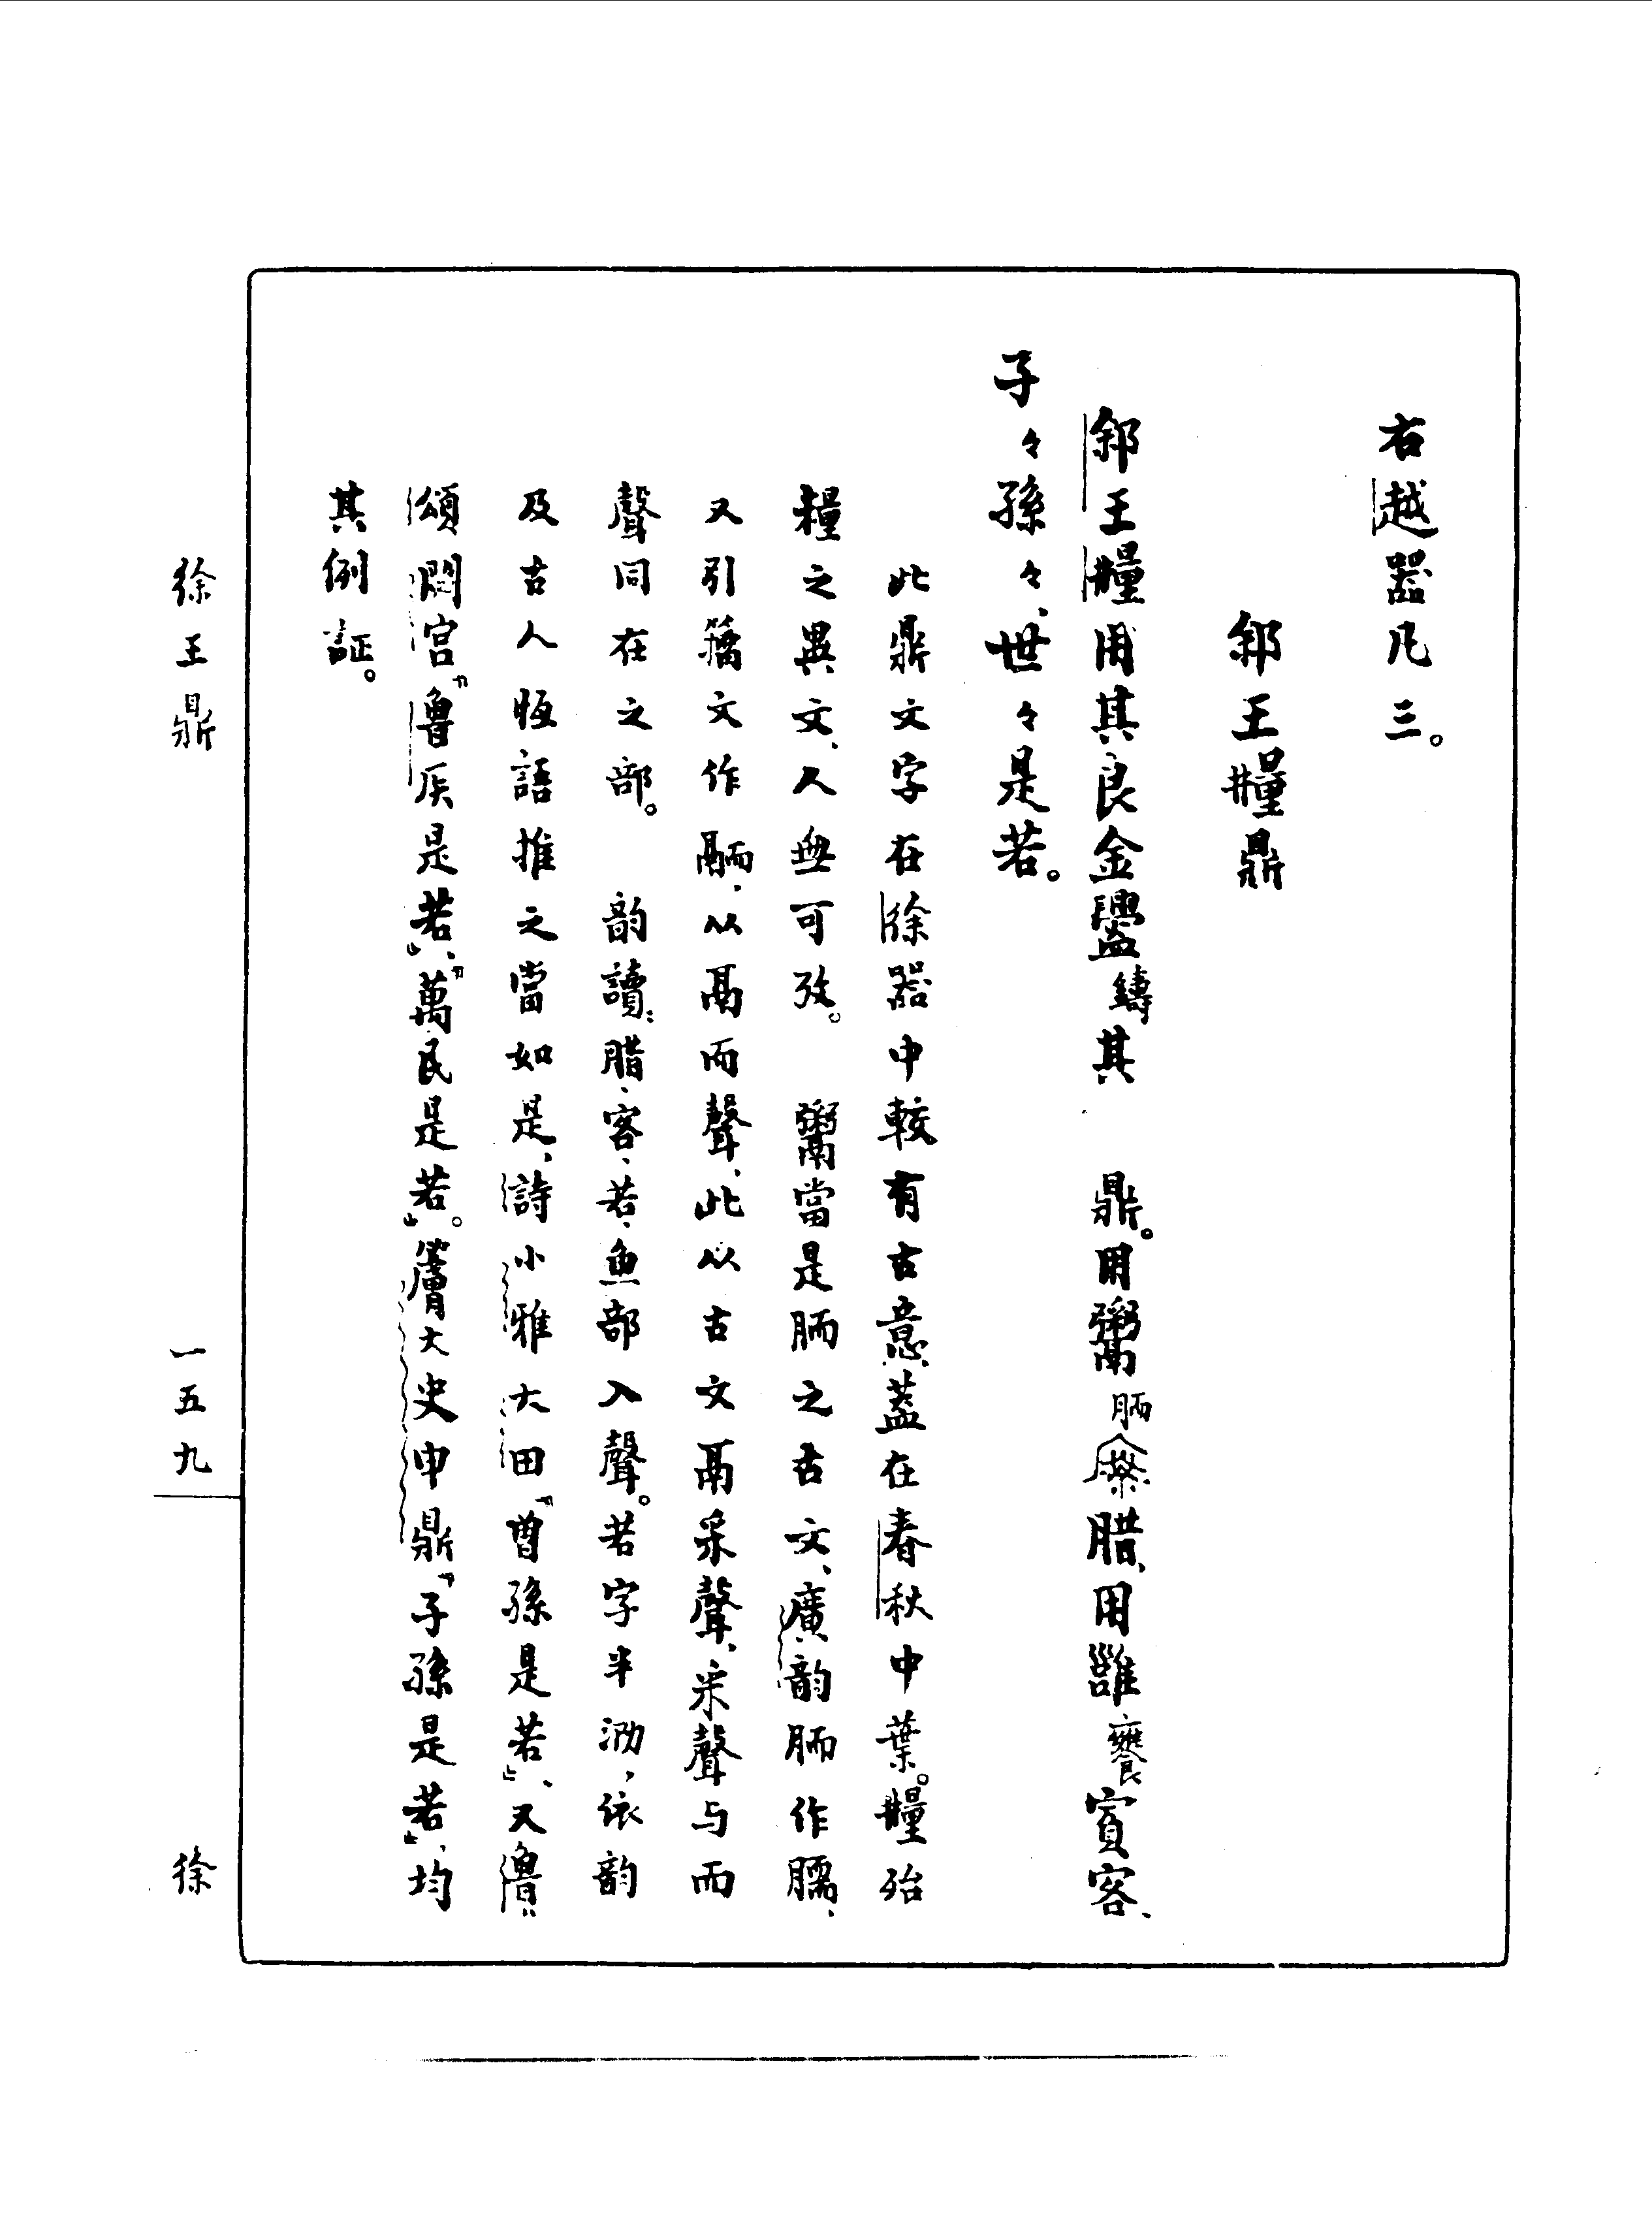 右越器凡三。
郐王𥻔鼎
郐王𥻔用其良金鑄其　鼎。用䰞胹腊、用雝饔賓客、
子々孫々、世々是若。
此鼎文字在徐器中較有古意、蓋在春秋中葉。𥻔殆
糧之異文、人無可攷。　䰞當是胹之古文、廣韵胹作臑、
又引籀文作𩱓、从鬲而聲、此从古文鬲采聲、采聲与而
聲同在之部。　韵讀：腊、客、若、魚部入聲。若字半泐，依韵
及古人恆語推之當如是、詩小雅大田『曾孫是若』、又魯
頌閟宮『魯矦是若』、『萬民是若。』大史申鼎『子孫是若』、均
其例証。
徐王鼎　一五九　徐